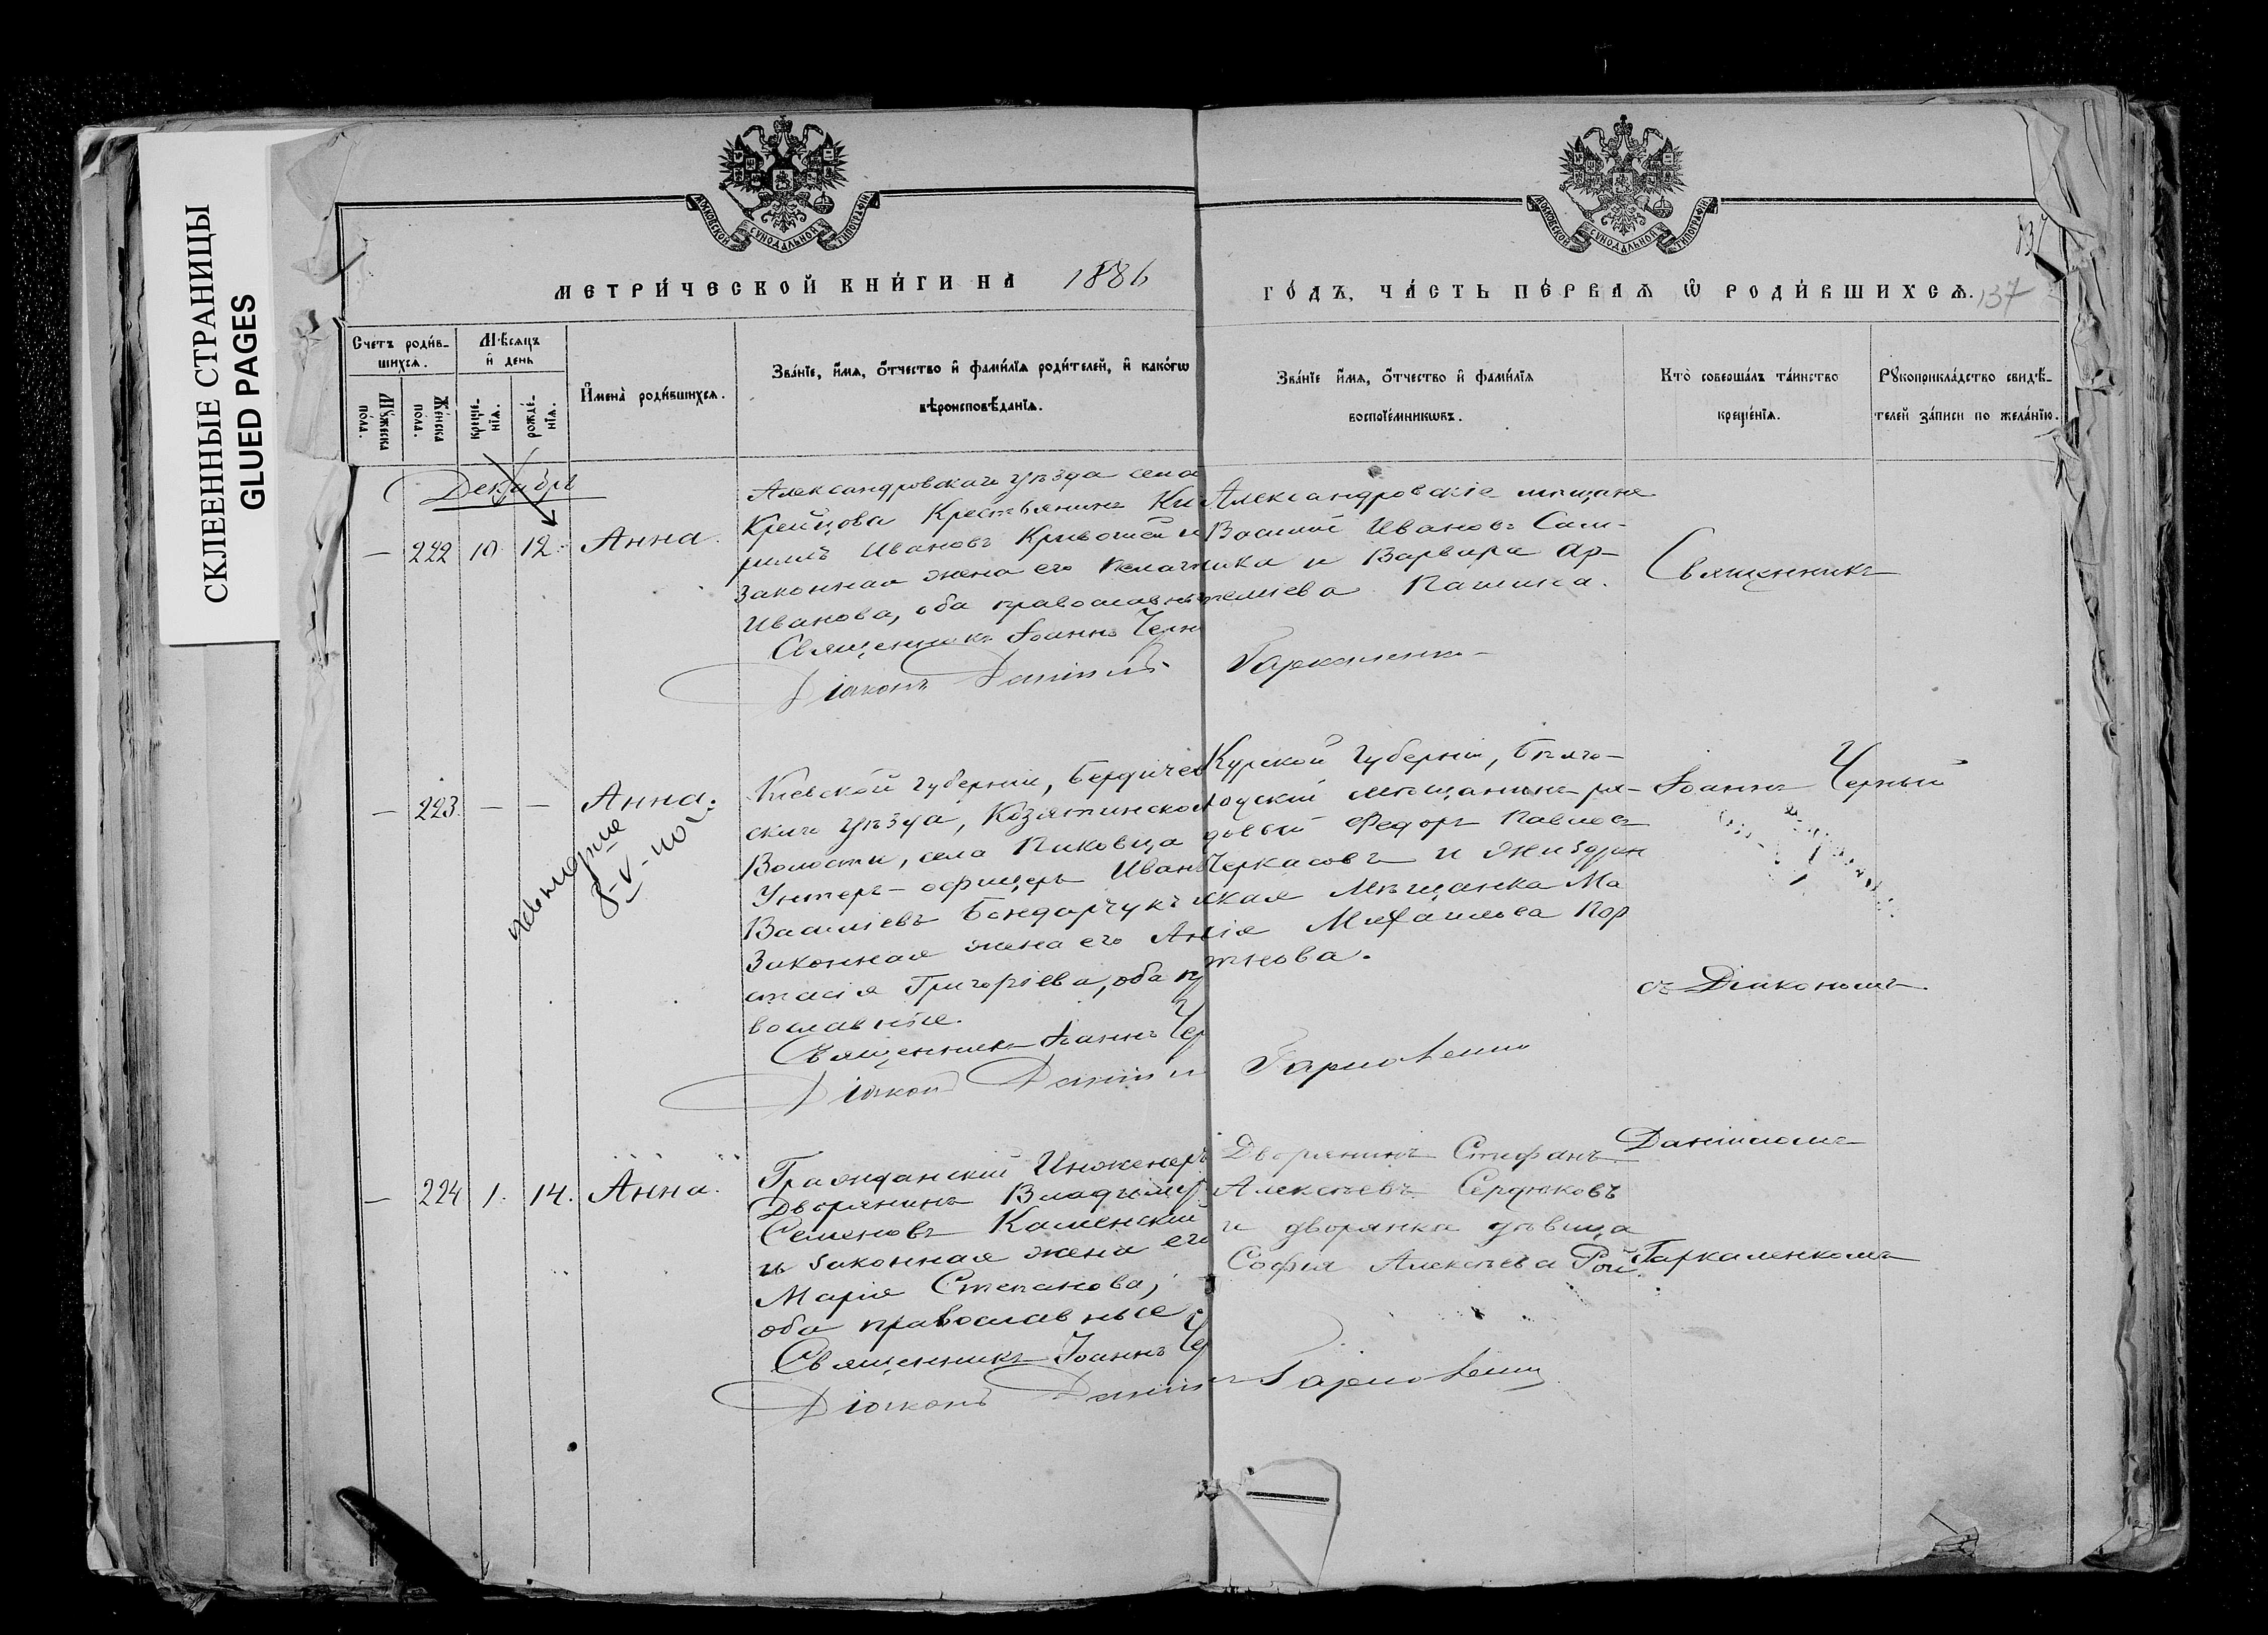 СКЛЕЕННЫЕ СТРАНИЦЫ
GLUED PAGES
МОСКОВСКОЙ СѴНОДАЛЬНОЙ ТИПОГРАФІИ
МОСКОВСКОЙ СѴНОДАЛЬНОЙ ТИПОГРАФІИ
МЕТРИ́ЧЕСКОЙ КНИ́ГИ НА 1886
ГО́ДЪ, ЧА́СТЬ ПЕ́РВАѦ Ѡ РОДИ́ВШИХСѦ. 137
137
Счетъ роди́в-
шихсѧ.
Мѣсѧцъ
и день
Мꙋ́жеска
пола.
Же́нска
пола.
креще́-
нїѧ.
рожде́-
нїѧ.
Имена̀ роди́вшихсѧ.
Зва́нїе, и́мѧ, о́тчество и фами́лїѧ роди́телей, и како́гѡ
вѣроисповѣ́данїѧ.
Зва́нїе и́мѧ, о́тчество и фами́лїѧ
воспрїе́мникѡвъ.
Кто̀ соверша́лъ та́инство
креще́нїѧ.
Рꙋкоприкла́дство свидѣ́-
телей за́писи по жела́нїю.
Декабрь
— 222 10. 12. Анна.
Александровскаго уѣзда села
Крестьянинъ Ки
Ивановъ Кривошей и
Законная жена его
Иванова, оба православны
Священникъ Іоаннъ Черн
Діаконъ Даніилъ Гаркаленко
Александровскіе мѣщане
Василій Ивановъ Сам-
ика и Варвара Ар-
темiева Пашина.
Священникъ
— 223. — — Анна.
8-V-110 г.
Кіевской губерніи, Бердичев
скаго уѣзда, Козятинской
Волости, села Пиковца
Унтеръ-офицеръ Иванъ
Василіевъ Бондарчукъ и
Законная жена его Ана
стасія Григоріева, оба пр
вославные.
Священникъ Іоаннъ Чер
Діаконъ Даніил Гаркаленко
Курской Губерніи, Бѣлго-
родскій мѣщанинъ ря-
довой Федоръ Павловъ
Черкасовъ и Жиздрин
ская Мѣщанка Ма
рія Михаилова Пор
тнова.
Іоаннъ Черный
съ Діакономъ
— 224 1. 14. Анна.
Гражданскій Инженеръ
Дворянинъ Владиміръ
Семеновъ Каменскій
и законная жена его
Марія Степанова,
оба православные
Священникъ Іоаннъ Че
Діаконъ Даніил Гаркаленко
Дворянинъ Стефанъ
Алексѣевъ Сердюковъ
и дворянка дѣвица
Софія Алексѣева Рой.
Даніиломъ
Гаркаленкомъ